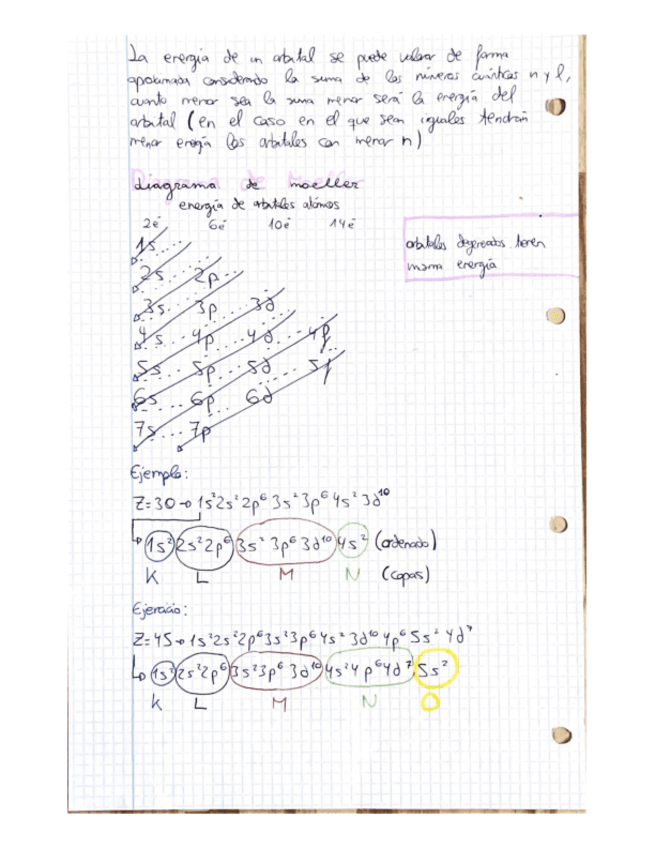 La energía de un orbital se puede valorar de forma
aproximada considerando la suma de los números cuánticos n y l,
cuanto menor sea la suma menor será la energía del
orbital (en el caso en el que sean iguales tendrán
menor energía los orbitales con menor n)
Diagrama de Moeller
diagrama de moeller
energía de orbitales atómos
2e⁻ 6e⁻ 10e⁻ 14e⁻
orbitales degenerados tienen
misma energía
1s
2s 2p
3s 3p 3d
4s 4p 4d 4f
5s 5p 5d 5f
6s 6p 6d
7s 7p
Ejemplo:
Z=30→1s²2s²2p⁶3s²3p⁶4s²3d¹⁰
1s² 2s²2p⁶ 3s²3p⁶3d¹⁰ 4s² (ordenado)
K L M N (capas)
Ejercicio:
Z=45→1s²2s²2p⁶3s²3p⁶4s²3d¹⁰4p⁶5s²4d⁷
1s² 2s²2p⁶ 3s²3p⁶3d¹⁰ 4s²4p⁶4d⁷ 5s²
K L M N O